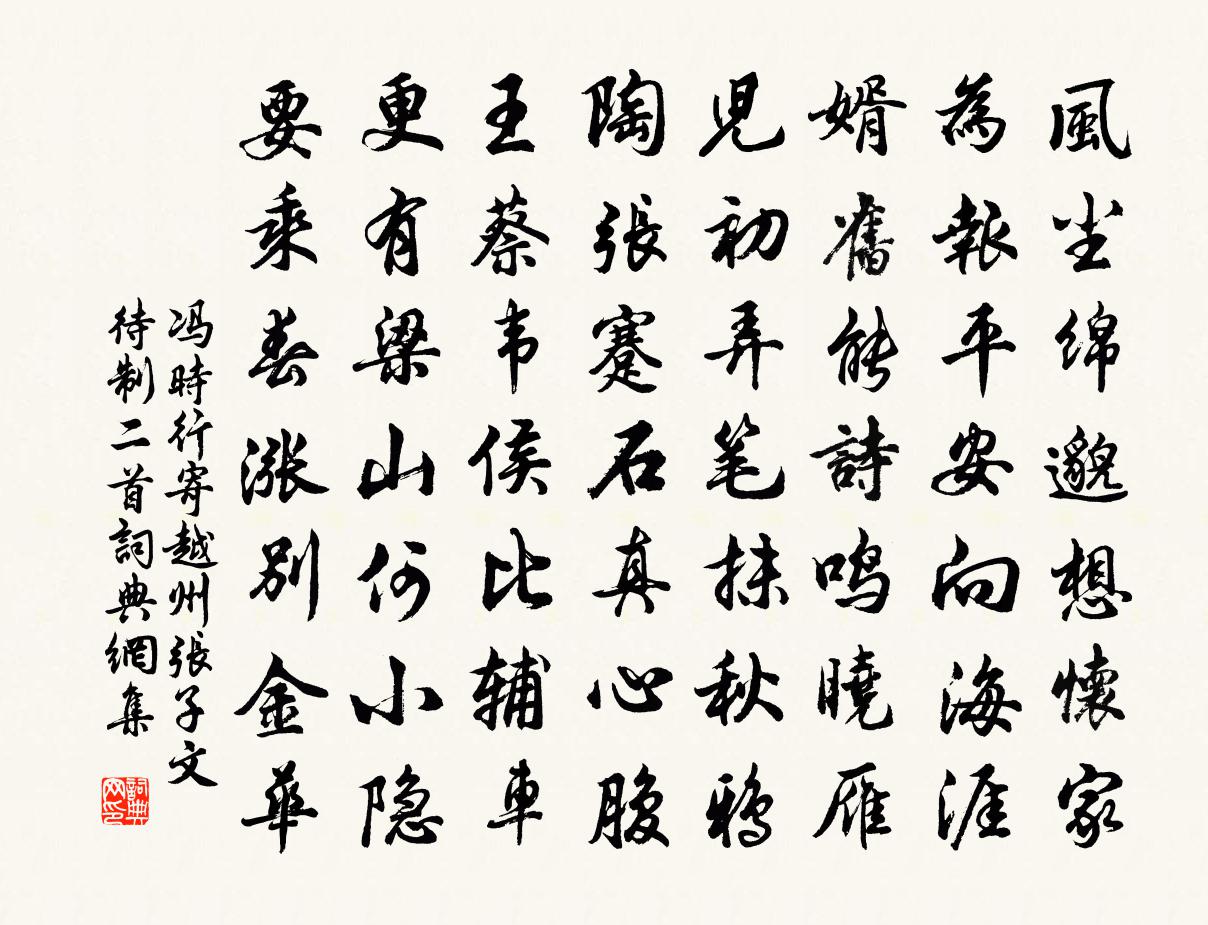 風尘绵邈想懷家
為報平安向海涯
婿舊能詩鸣曉雁
児初弄笔抹秋鸦
陶張蹇石真心腹
王蔡韦侯比辅車
更有梁山何小隐
要乘春漲別金華
冯時行寄越州張子文
待制二首詞典網集
詞典网印